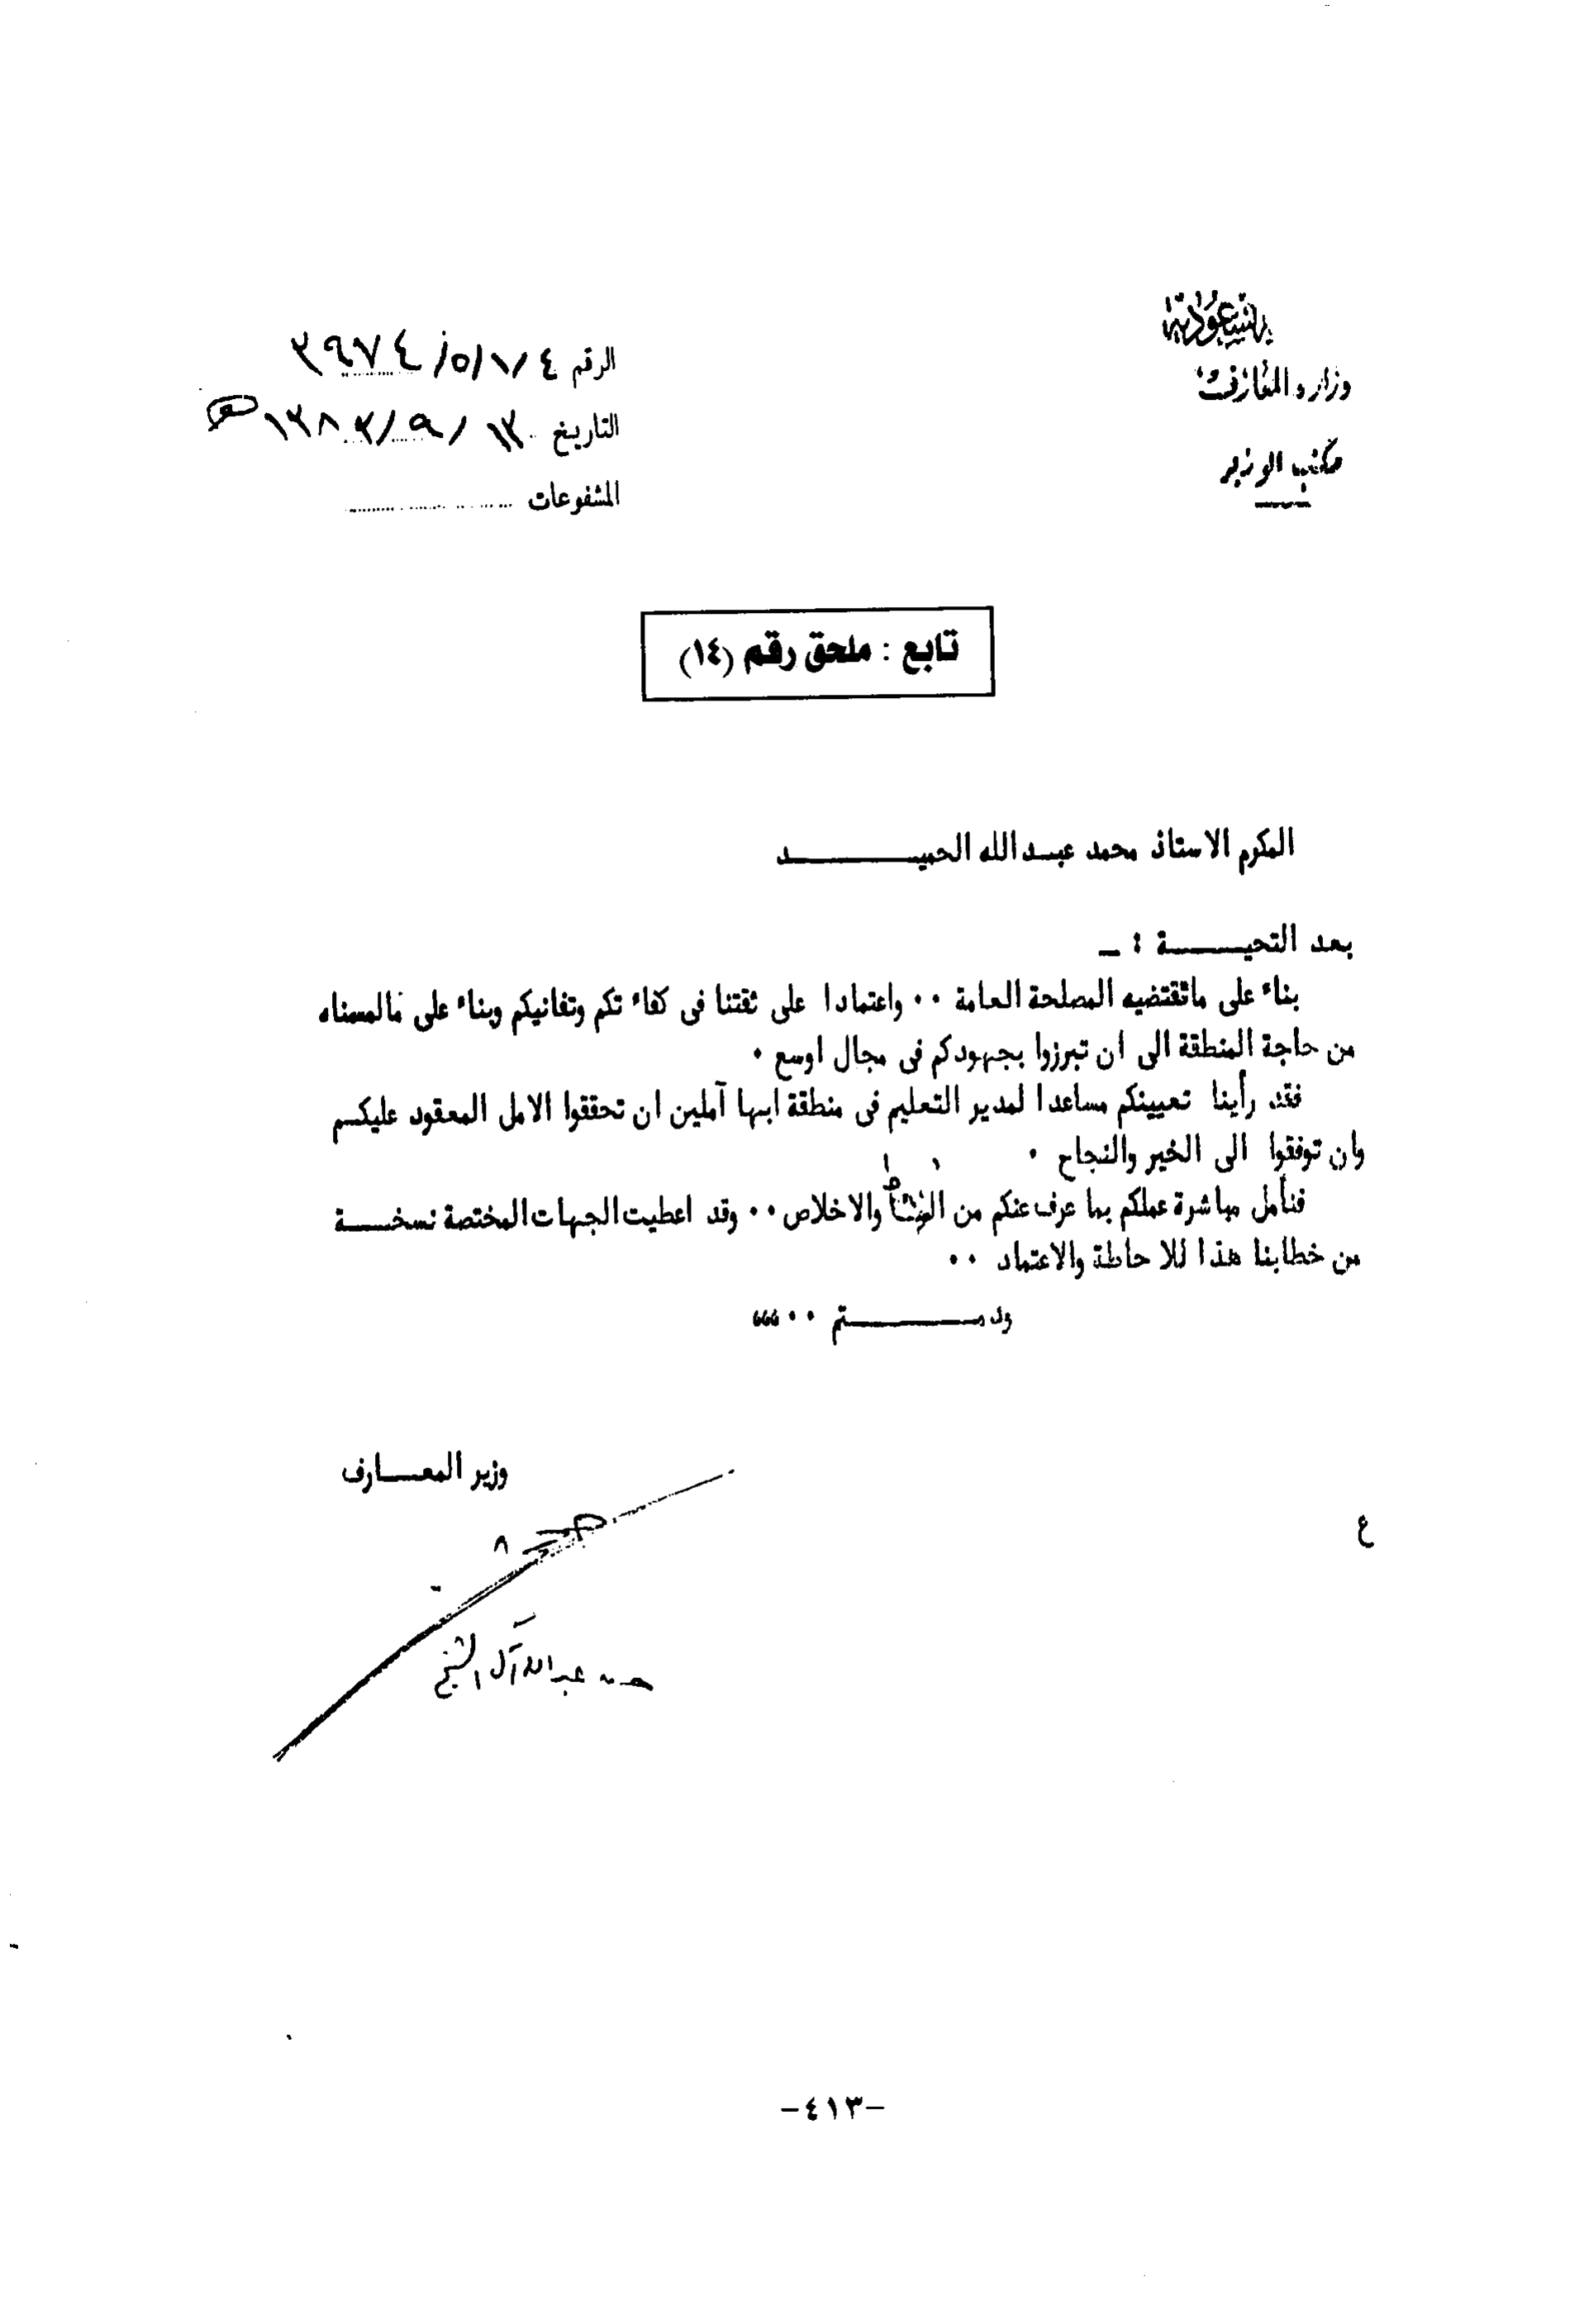 السعودية
وزارة المعارف
مكتب الوزير
الرقم ٤/١/٥/ ٣٩٧٤
التاريخ ١٣ / ٩ / ١٣٨٢ هـ
المشفوعات
تابع : ملحق رقم (١٤)
المكرم الاستاذ محمد عبد الله الحميــــــــد
بعد التحيــــــة : ـ
بناء على ماتقتضيه المصلحة العامة ٠٠ واعتمادا على ثقتنا فى كفاء تكم وتفانيكم وبناء على مالمسناه
من حاجة المنطقة الى ان تبرزوا بجهودكم فى مجال اوسع ٠
فقد رأينا تعيينكم مساعدا لمدير التعليم فى منطقة ابها آملين ان تحققوا الامل المعقود عليكـم
وان توفقوا الى الخير والنجاح ٠
فنأمل مباشرة عملكم بما عرف عنكم من النشاط والاخلاص ٠٠ وقد اعطيت الجهات المختصة نسخــــة
من خطابنا هذا للا حاطة والاعتماد ٠٠
ودمــــــــتم ٠٠ ،،،
وزير المعــــارف
ع
حسن عبدالله آل الشيخ
-٤١٣-